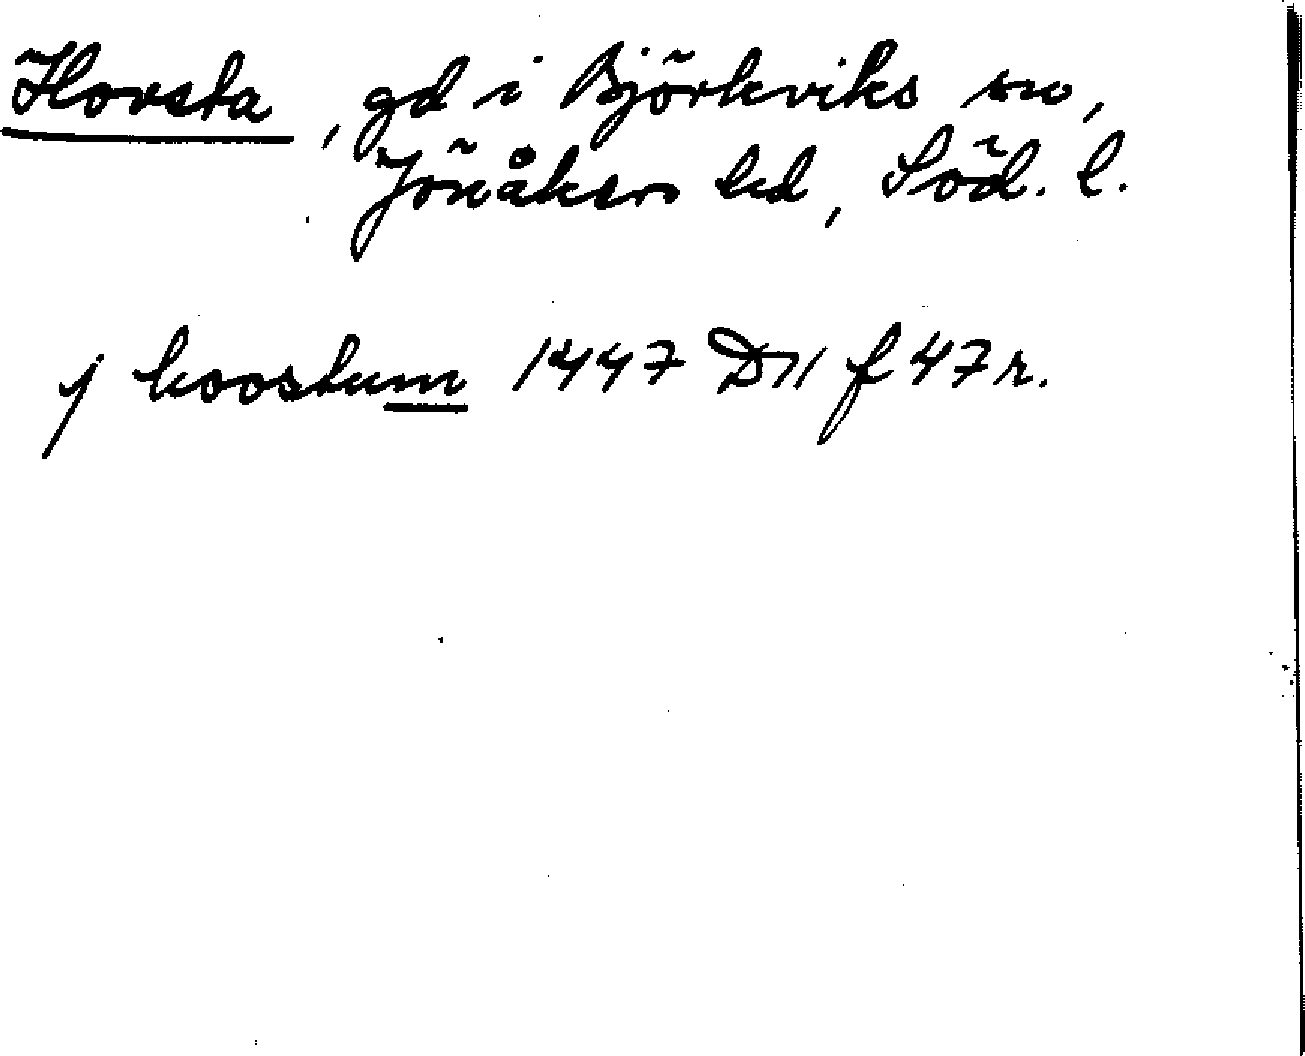 Hovsta, gd i Björkviks sn,
Jönåkers hd, Söd. l.
j hoostum 1447 D 11 f 47 r.